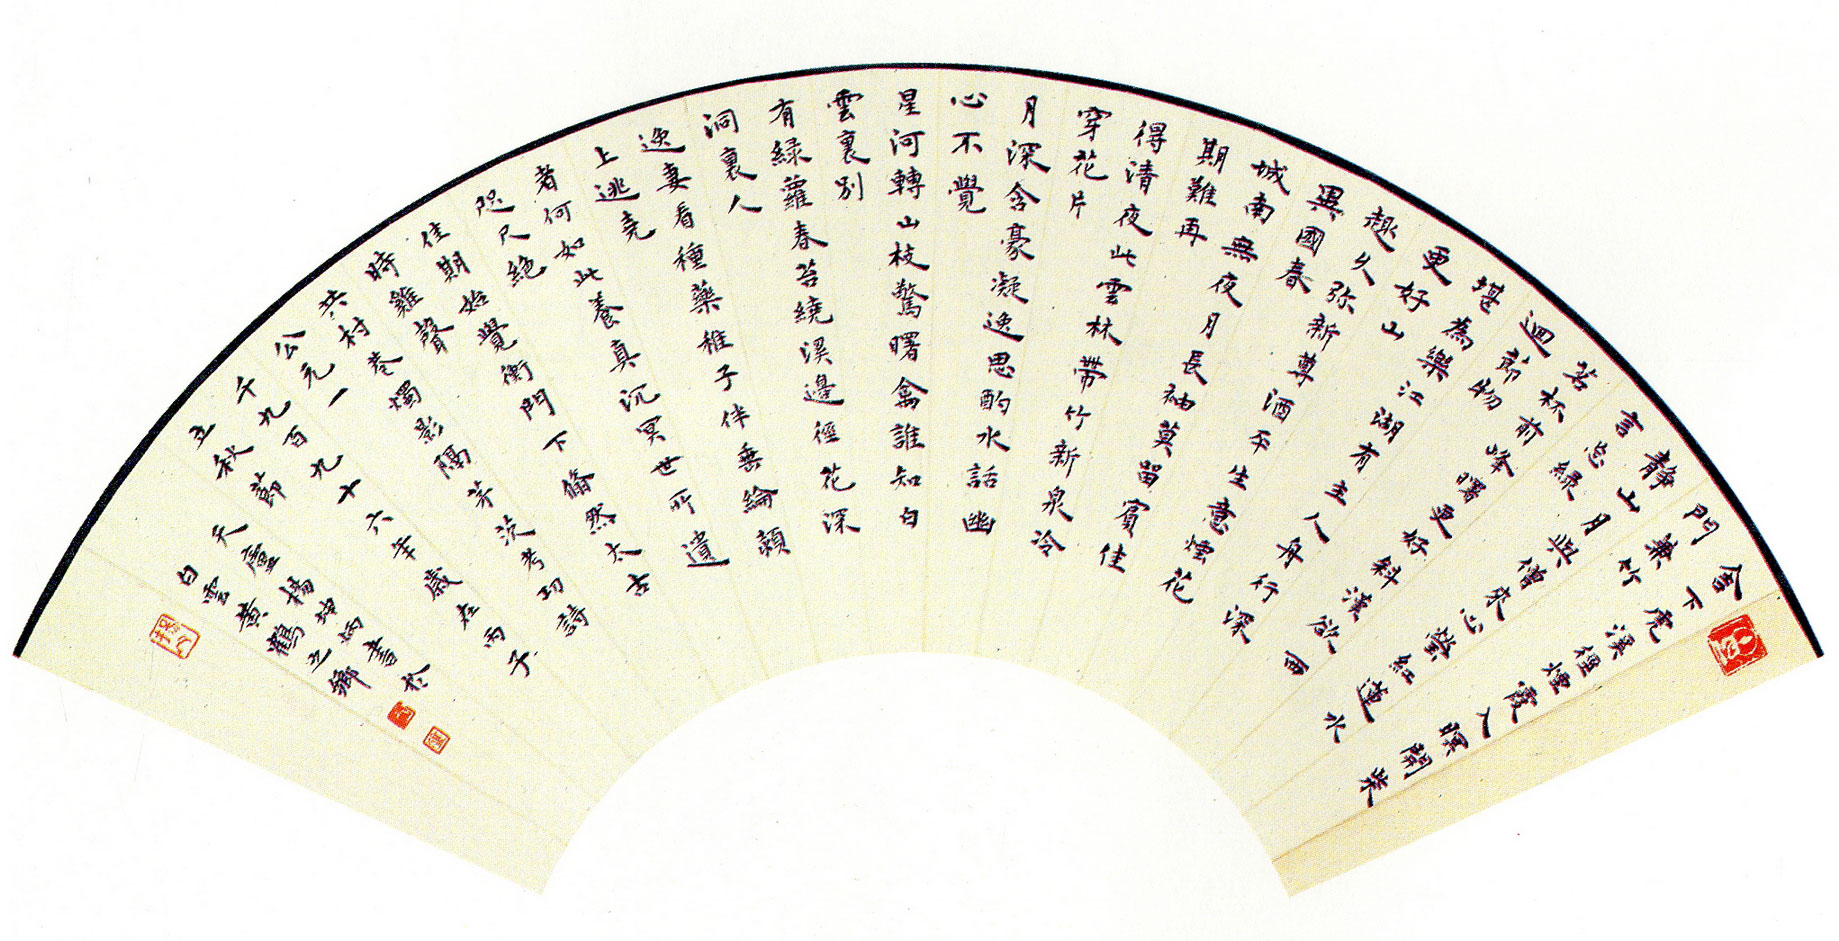 舍下虎溪徑煙霞入暝開柴
門兼竹
靜山月與僧來心瑩紅蓮水
言忘綠
茗杯前峰曙更好斜漢欲西
迴節物
堪為樂江湖有主人舟行深
更好山
趣久弥新尊酒平生意煙花
異國春
城南無夜月長袖莫留賓佳
期難再
得清夜此雲林帶竹新泉冷
穿花片
月深含豪凝逸思酌水話幽
心不覺
星河轉山枝驚曙禽誰知白
雲裏別
有綠蘿春苔繞溪邊徑花深
洞裏人
逸妻看種藥稚子伴垂綸潁
上逃堯
者何如此養真沉冥世所遺
咫尺絕
佳期始覺衡門下翛然太古
時雞聲
共村巷燭影隔茅茨考功詩
公元一
千九百九十六年歲在丙子
立秋節
天廬楊坤炳書於
白雲黃鶴之鄉